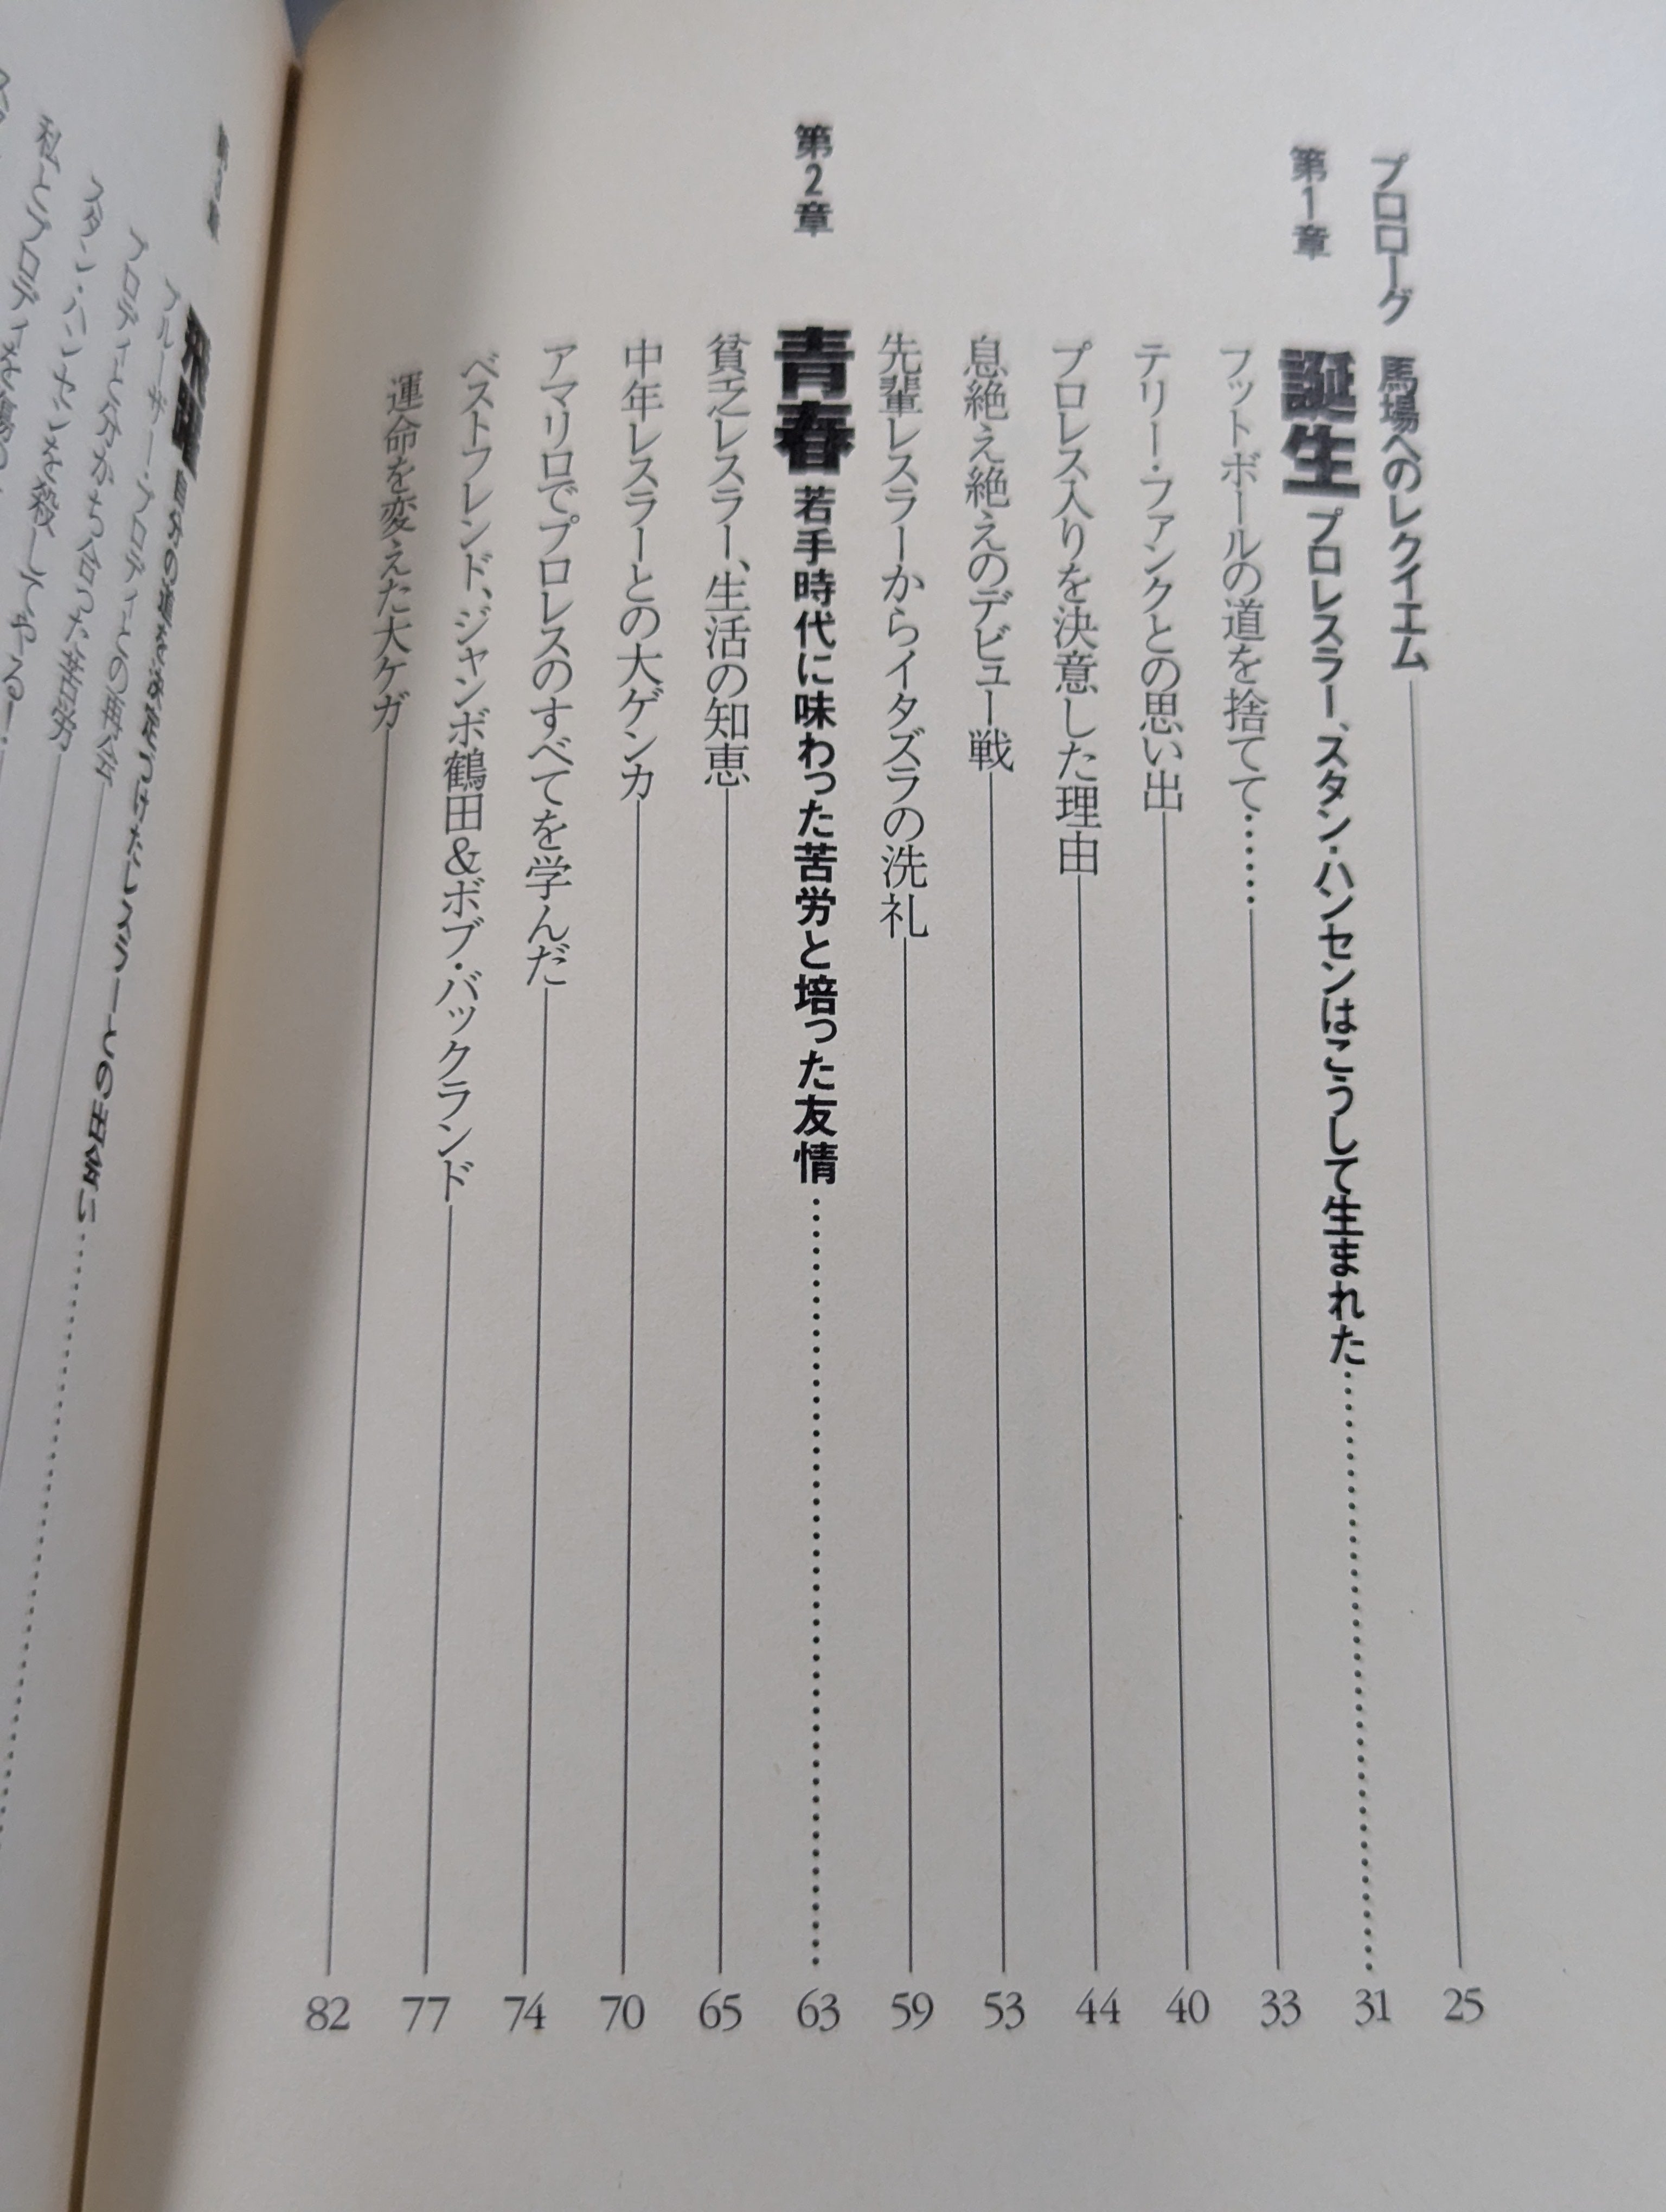 プロローグ 馬場へのレクイエム 25
第1章 誕生 プロレスラー、スタン・ハンセンはこうして生まれた 31
フットボールの道を捨てて…… 33
テリー・ファンクとの思い出 40
プロレス入りを決意した理由 44
息絶え絶えのデビュー戦 53
先輩レスラーからイタズラの洗礼 59
第2章 青春 若手時代に味わった苦労と培った友情 63
貧乏レスラー、生活の知恵 65
中年レスラーとの大ゲンカ 70
アマリロでプロレスのすべてを学んだ 74
ベストフレンド、ジャンボ鶴田&ボブ・バックランド 77
運命を変えた大ケガ 82
飛躍 自分の道を決定づけたレスラーとの出会い
ブルーザー・ブロディとの再会
ブロディと分かち合った苦労
スタン・ハンセンを殺してやる!
私とブロディを